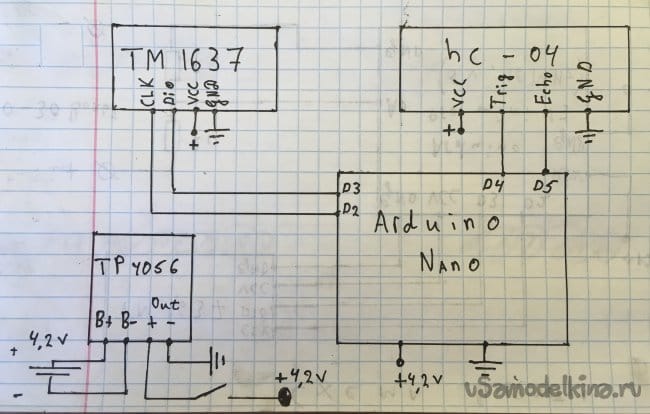 TM 1637
CLK
Dio
VCC
GND
+
hc - 04
VCC
Trig
Echo
GND
+
D3
D2
D4
D5
Arduino
Nano
+4,2V
TP4056
Out
B+
B-
+
-
+
4,2V
-
+4,2V
uSamodelkina.ru